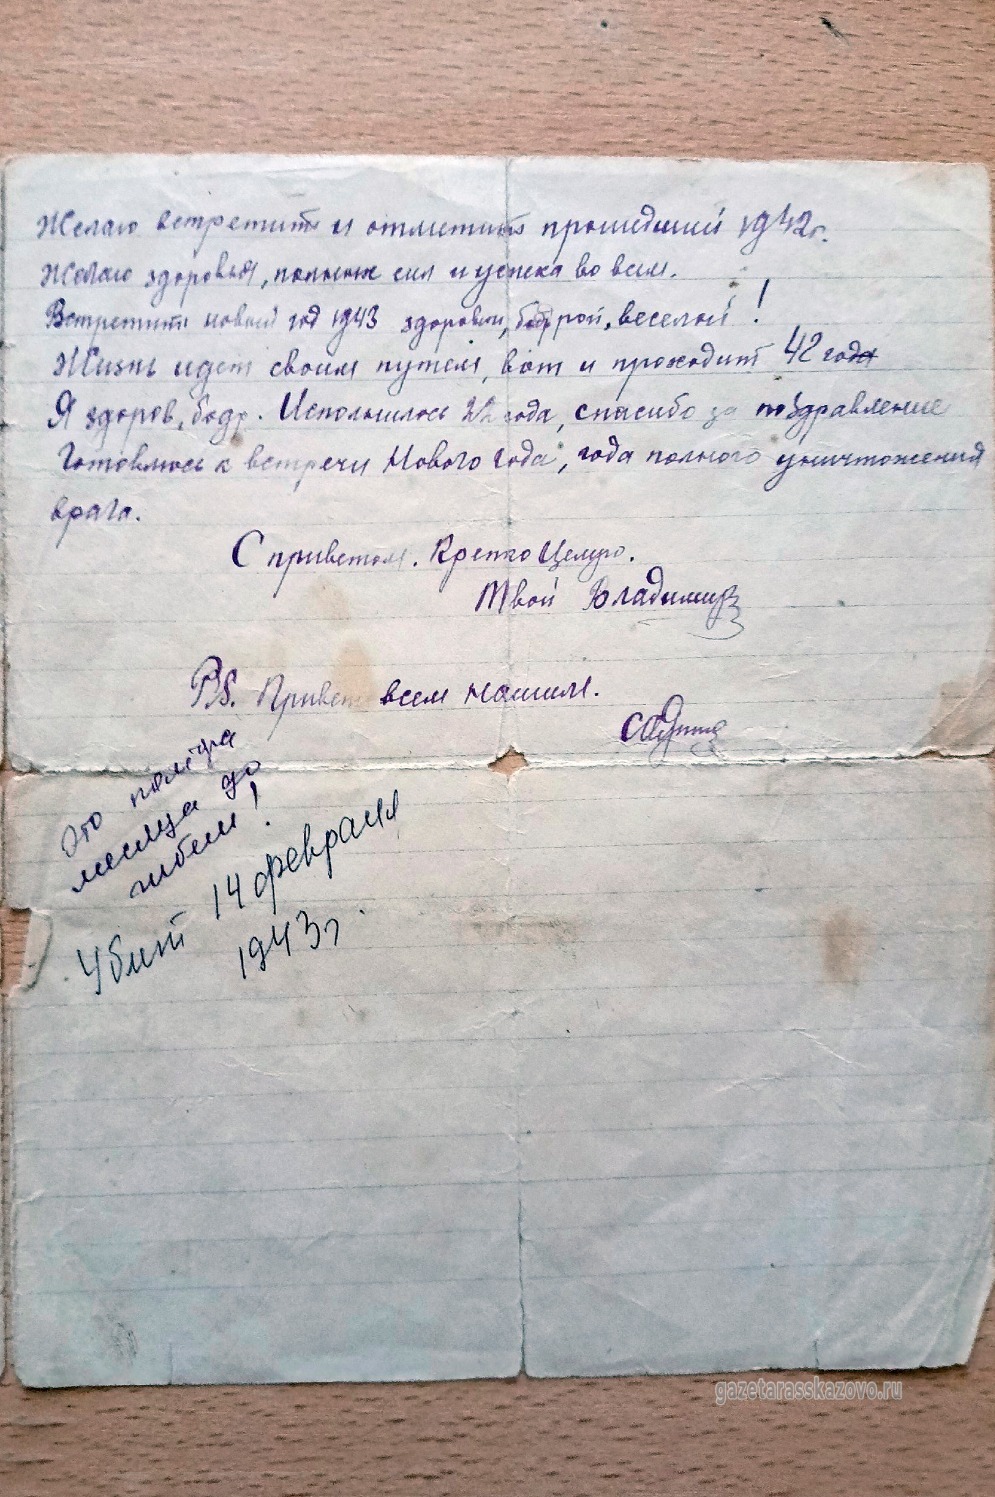 Желаю встретить и отметить прошедший 1942г.
Желаю здоровья, полных сил и успеха во всем.
Встретить новый год 1943 здоровой, бодрой, веселой!
Жизнь идет своим путем, вот и проходит 42 год
Я здоров, бодр. Исполнилось 22 года, спасибо за поздравление
Готовлюсь к встречи Нового года, года полного уничтожения
врага.
С приветом. Крепко Целую.
Твой Владимир
PS. Привет всем нашим.
Это полтора
месяца до
гибели!
Убит 14 февраля
1943г.
gazetarasskazovo.ru